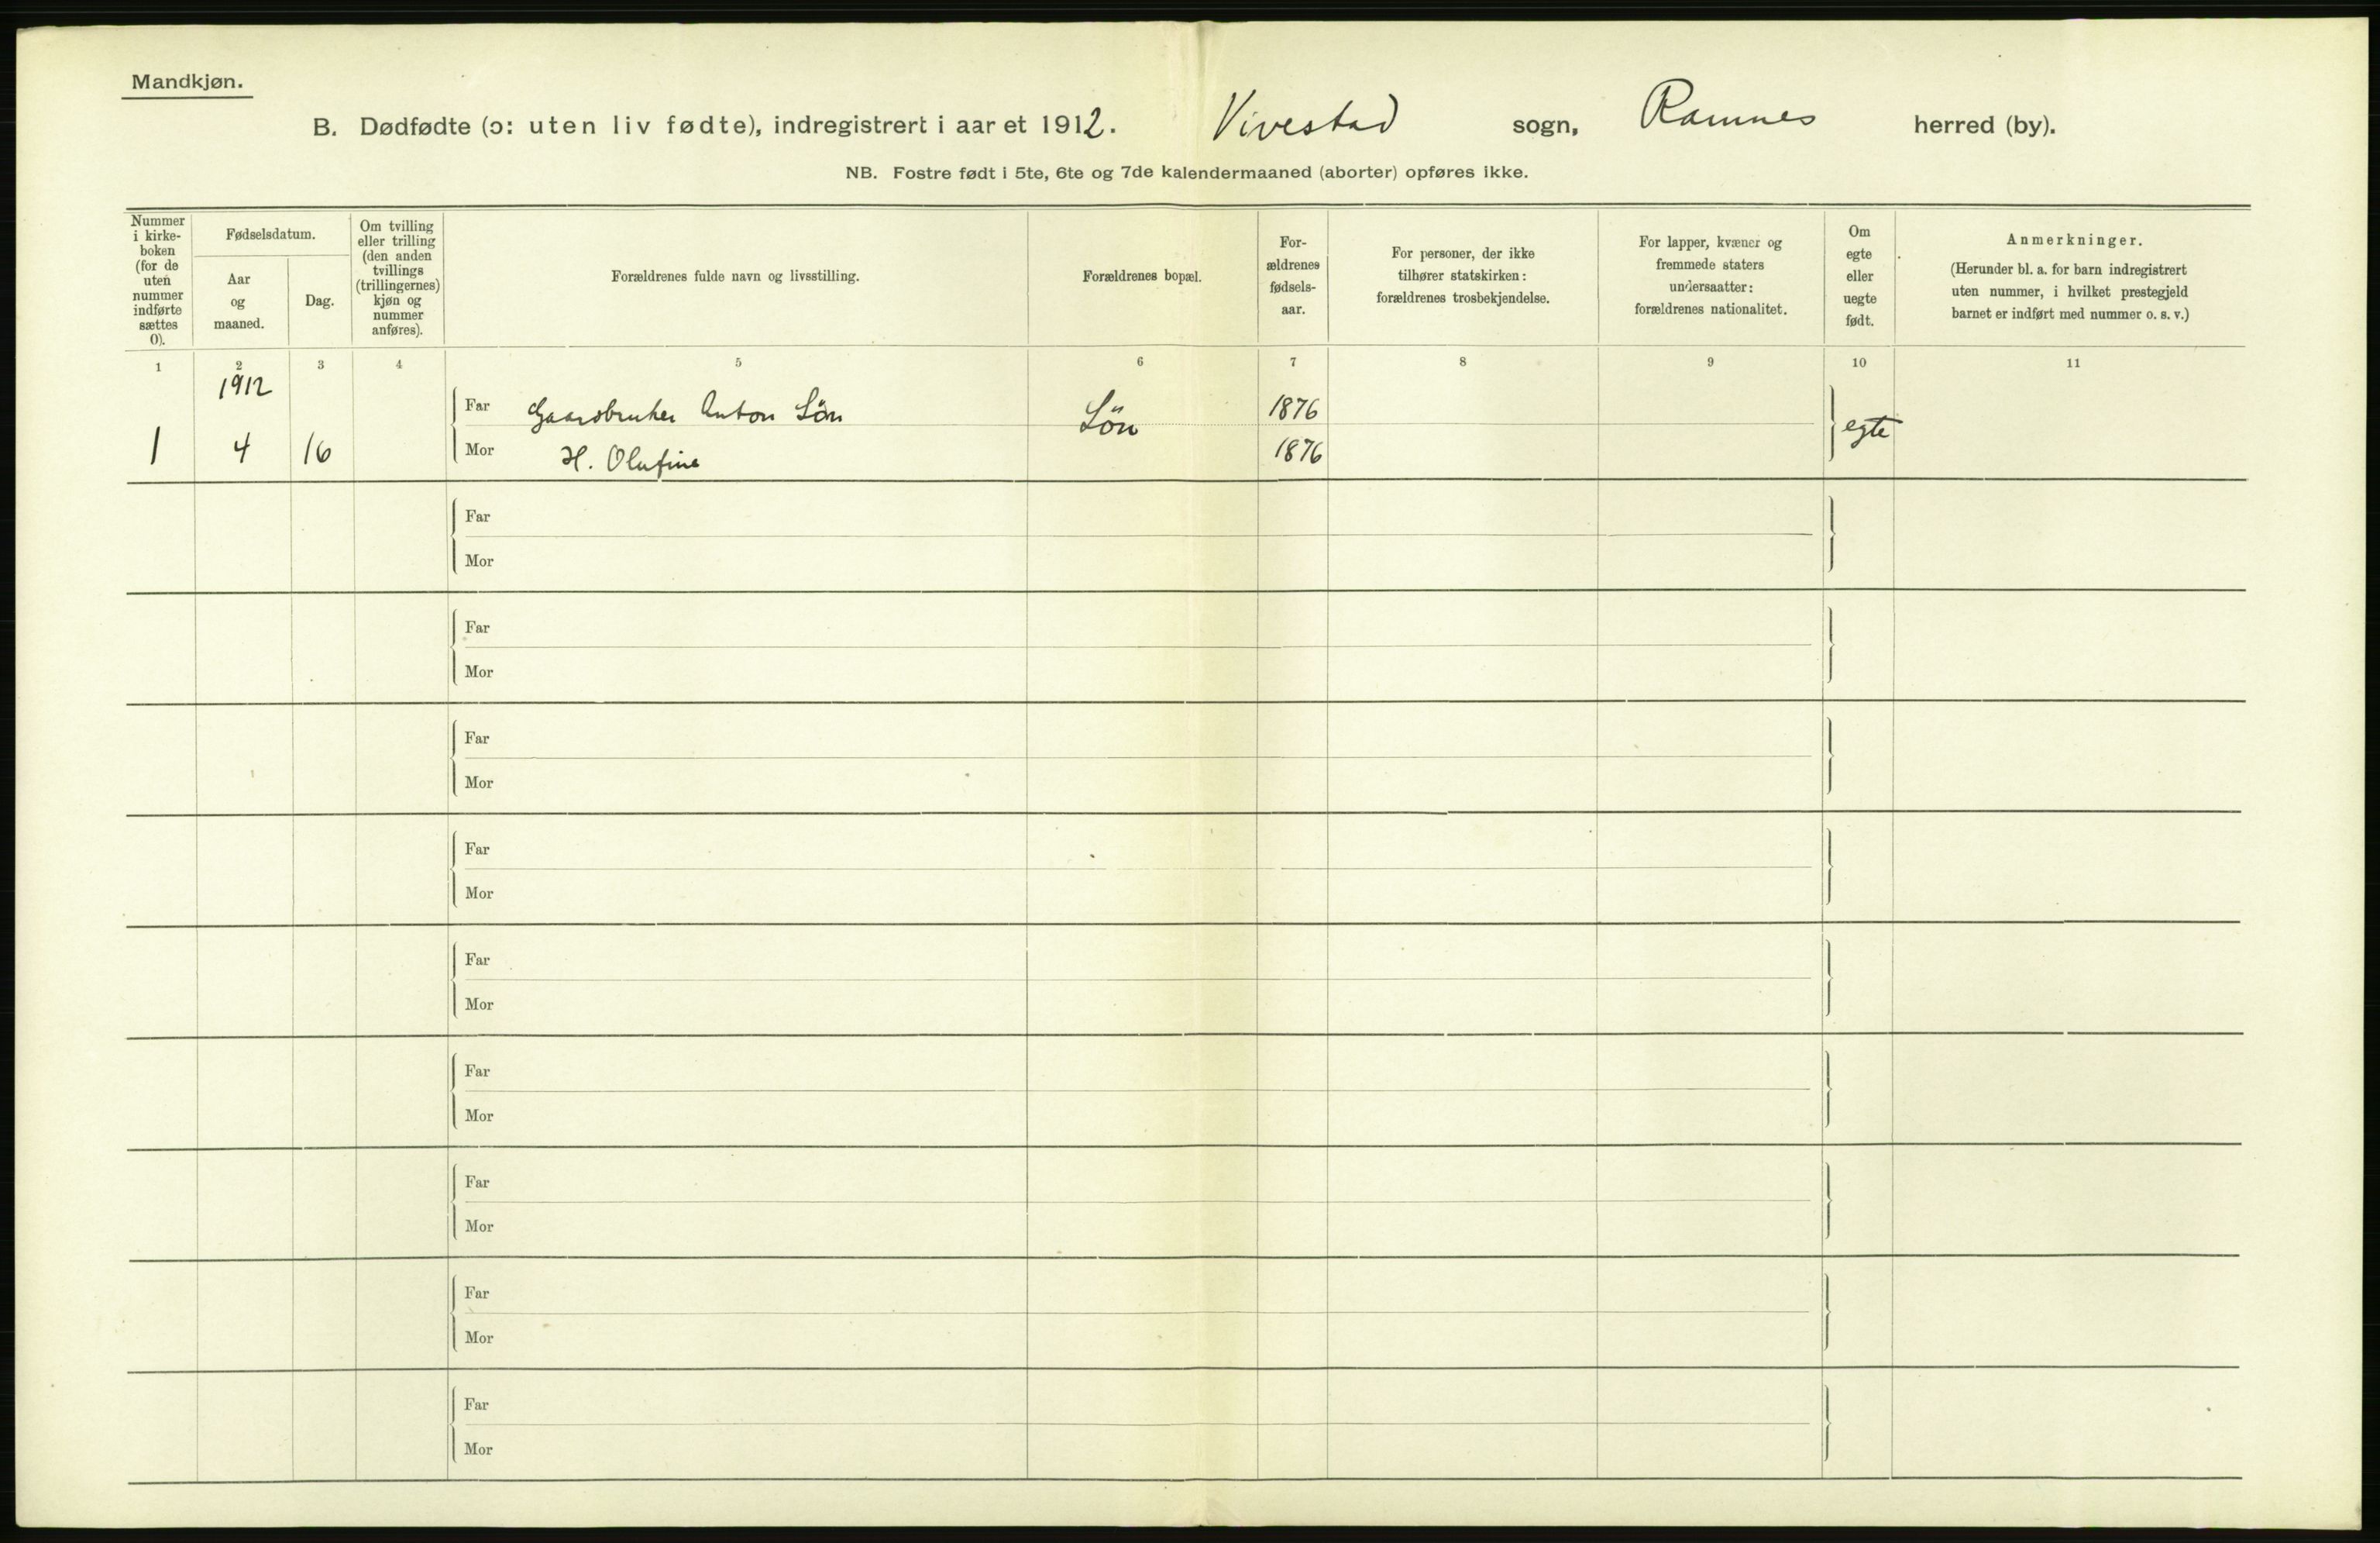 Mandkjøn.
B. Dødfødte (ɔ: uten liv fødte), indregistrert i aaret 1912. Vivestad sogn, Ramnes herred (by).
NB. Fostre født i 5te, 6te og 7de kalendermaaned (aborter) opføres ikke.
Nummer
i kirke-
boken
(for de
uten
nummer
indførte
sættes
0).
Fødselsdatum.
Aar
og
maaned.
Dag.
Om tvilling
eller trilling
(den anden
tvillings
(trillingernes)
kjøn og
nummer
anføres).
Forældrenes fulde navn og livsstilling.
Forældrenes bopæl.
For-
ældrenes
fødsels-
aar.
For personer, der ikke
tilhører statskirken:
forældrenes trosbekjendelse.
For lapper, kvæner og
fremmede staters
undersaatter:
forældrenes nationalitet.
Om
egte
eller
uegte
født.
Anmerkninger.
(Herunder bl. a. for barn indregistrert
uten nummer, i hvilket prestegjeld
barnet er indført med nummer o. s. v.)
1 2 3 4 5 6 7 8 9 10 11
1912
Far Gaardbruker Anton Lön Lön 1876 egte
1 4 16 Mor H. Olufine 1876
Far
Mor
Far
Mor
Far
Mor
Far
Mor
Far
Mor
Far
Mor
Far
Mor
Far
Mor
Far
Mor